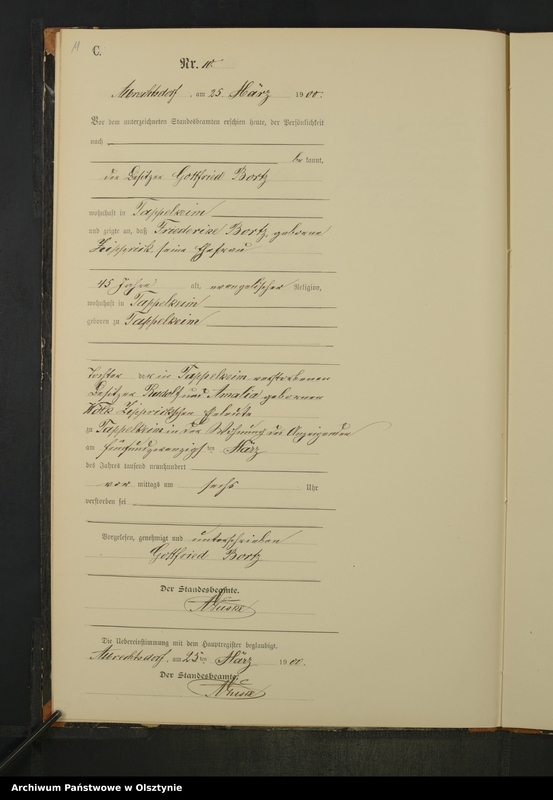 C.
Nr. 10.
Albrechtsdorf, am 25. März 1900.
Vor dem unterzeichneten Standesbeamten erschien heute, der Persönlichkeit
nach
be kannt,
der Besitzer Gottfried Bortz
wohnhaft in Tappelkeim
und zeigte an, daß Friederine Bortz, geborene
seine Ehefrau
45 Jahre alt, evangelischer Religion,
wohnhaft in Tappelkeim
geboren zu Tappelkeim
Tochter der in Tappelkeim verstorbenen
Besitzer Rudolf und Amalia geborenen
Eheleute
zu Tappelkeim in der Wohnung des Anzeigenden
am fünfundzwanzigsten März
des Jahres tausend neunhundert
vor mittags um sechs Uhr
verstorben sei
Vorgelesen, genehmigt und unterschrieben
Gottfried Bortz
Der Standesbeamte.
Die Uebereinstimmung mit dem Hauptregister beglaubigt.
Albrechtsdorf, am 25ten März 1900.
Der Standesbeamte.
Archiwum Państwowe w Olsztynie